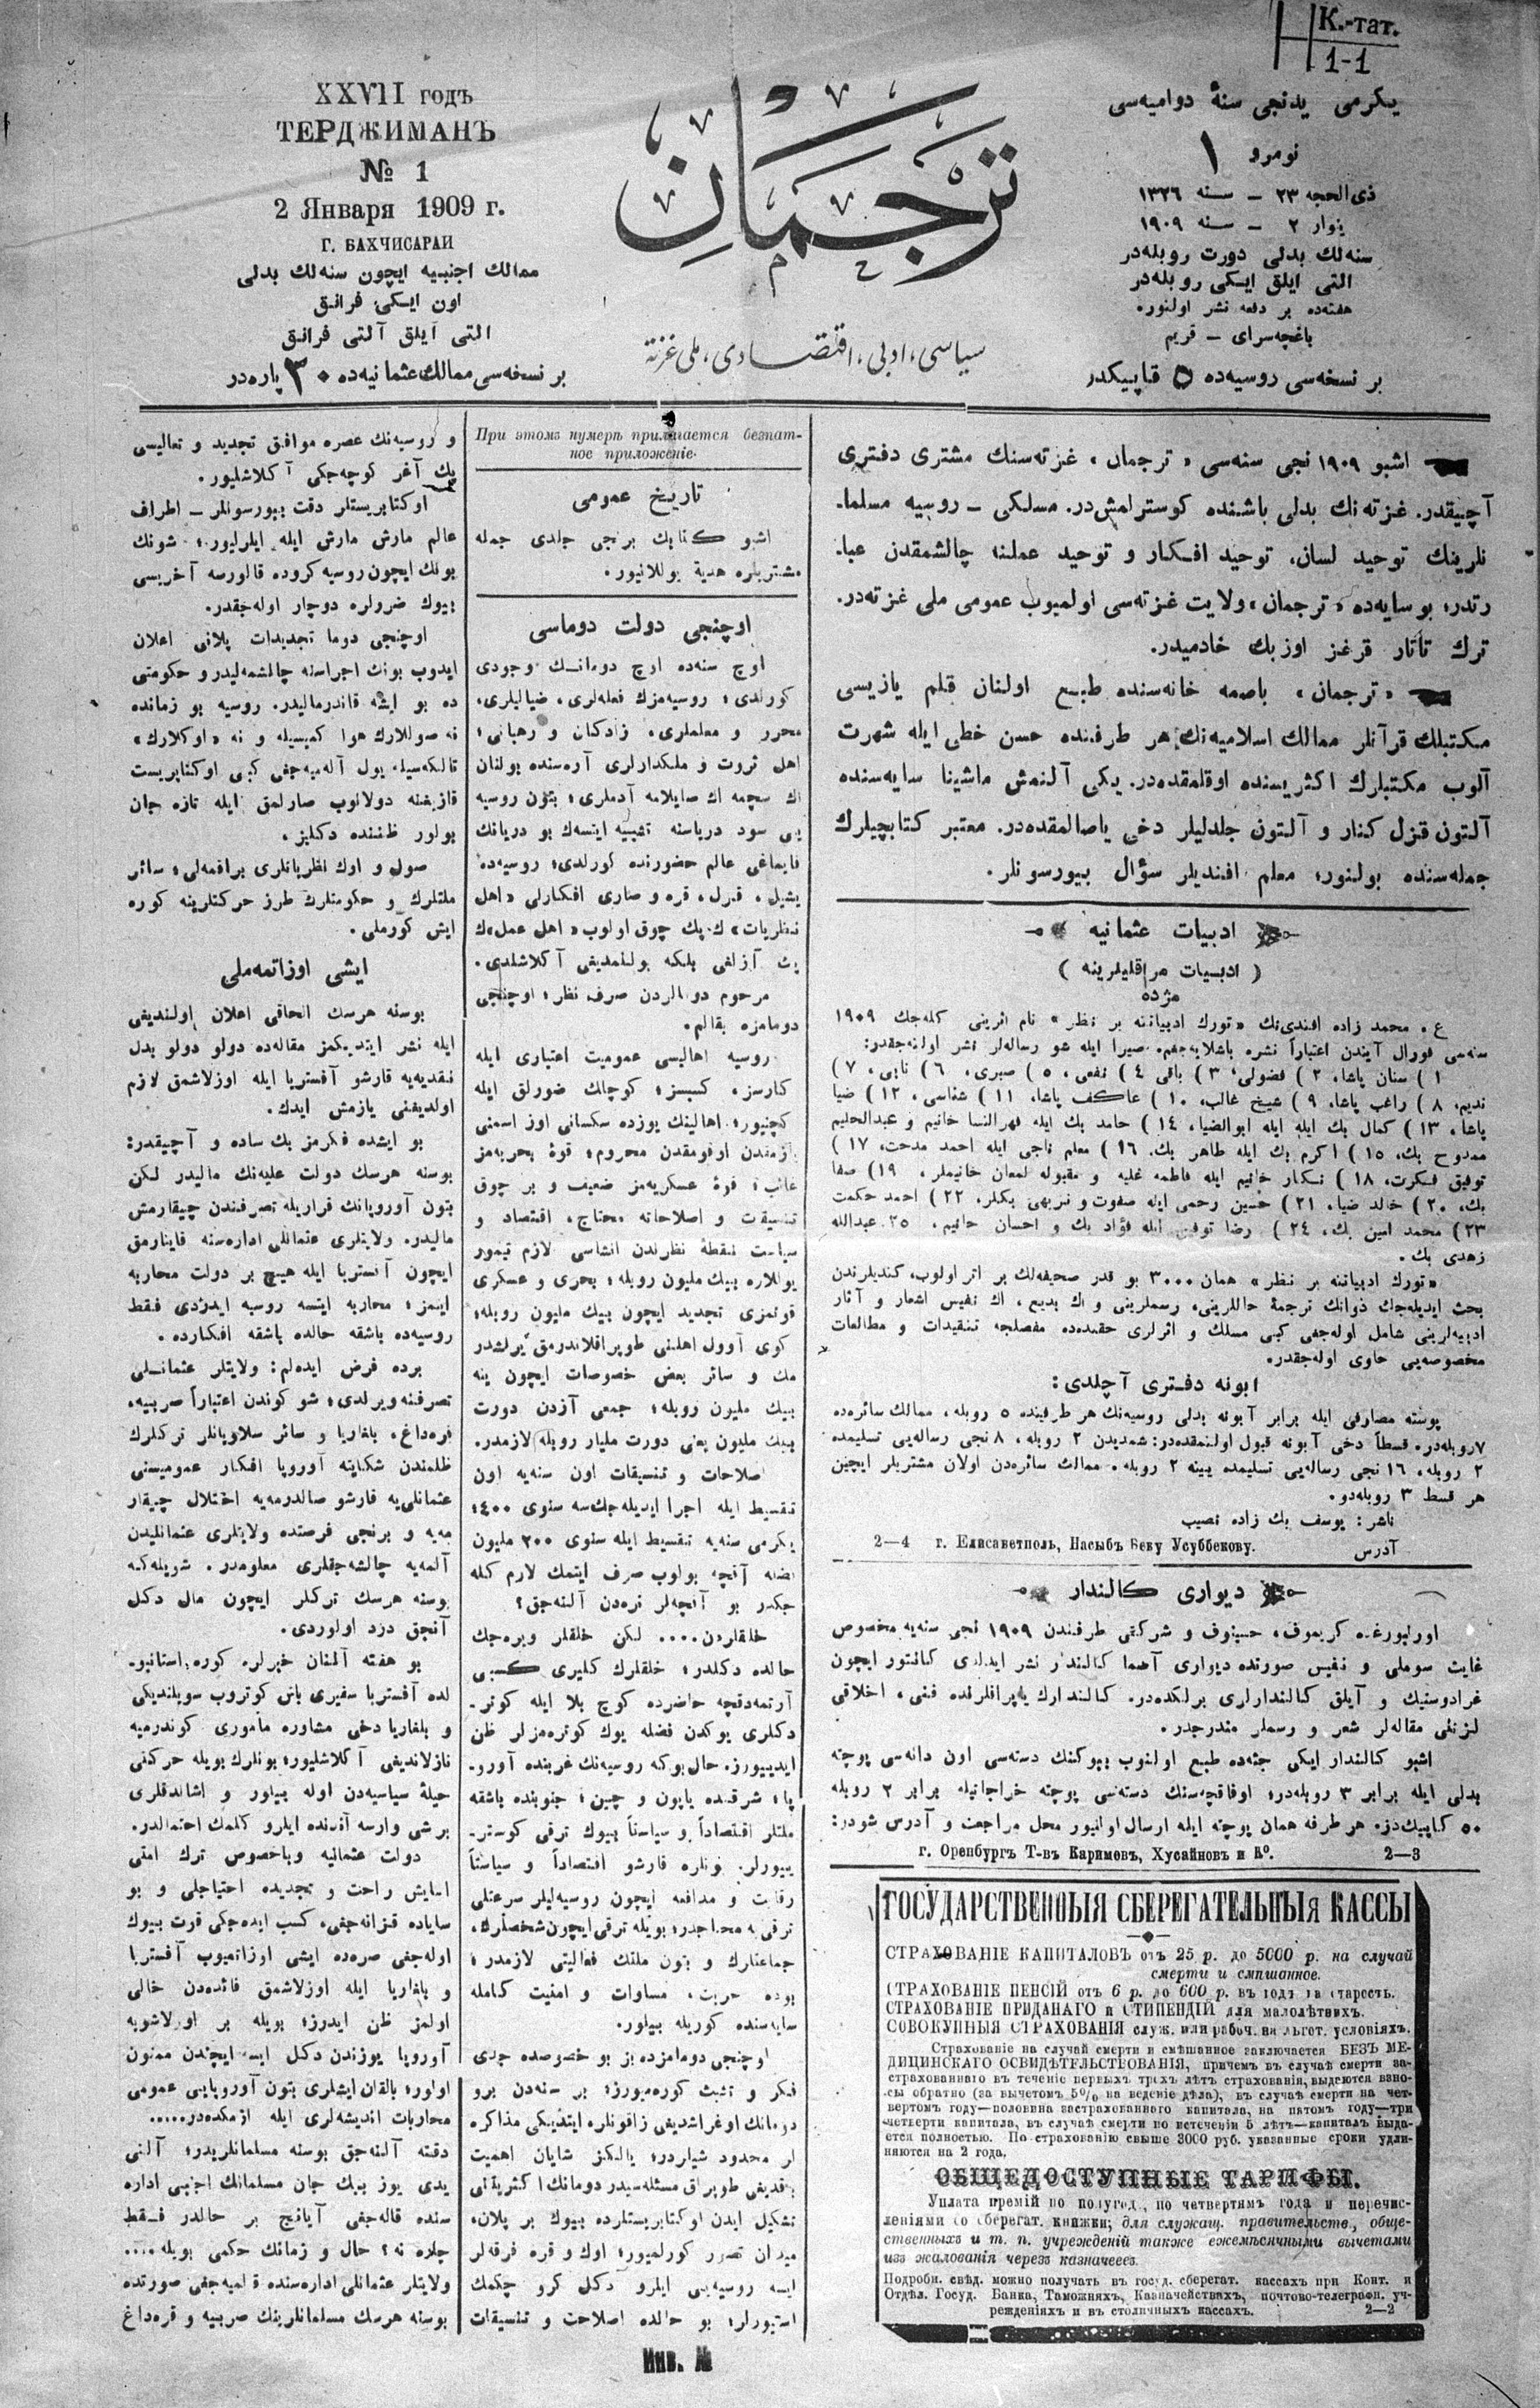 К.-тат.
1-1
XXVII годъ
ТЕРДЖИМАНЪ
№ 1
2 Января 1909 г.
Г. БАХЧИСАРАИ
ممالك اجنبيه ايچون سنه‌لك بدلی
اون ايكی فرانق
التی آيلق آلتی فرانق
بر نسخه‌سی ممالك عثمانيه‌ده ۳۰ پاره‌در
ترجمان
سیاسی، ادبی، اقتصادی، ملی غزته
يكرمی يدنجی سنۀ دواميه‌سی
نومرو ۱
ذی الحجه ۲۳ – سنه ۱۳۲۶
ينوار ۲ – سنه ۱۹۰۹
سنه‌لك بدلی دورت روبله‌در
التی ايلق ايكی روبله‌در
هفته‌ده بر دفعه نشر اولنور.
باغچه‌سرای – قريم
بر نسخه‌سی روسيه‌ده ۵ قاپيكدر
اشبو ۱۹۰۹ نجی سنه‌سی «ترجمان» غزته‌سنك مشتری دفتری
آچيقدر. غزته‌نك بدلی باشنده كوسترلمش‌در. مسلكی – روسيه مسلما-
نلرينك توحيد لسان، توحيد افكار و توحيد عملنه چالشمقدن عبا-
رتدر؛ بو سايه‌ده «ترجمان» ولايت غزته‌سی اولميوب عمومی ملی غزته‌در.
ترك تاتار قرغز اوزبك خادميدر.
«ترجمان» باصمه خانه‌سنده طبع اولنان قلم يازيسی
مكتبلك قرآنلر ممالك اسلاميه‌نك هر طرفنده حسن خطی ايله شهرت
آلوب مكتبلرك اكثريسنده اوقلمقده‌در. يكی آلنمش ماشينا سايه‌سنده
آلتون قزل كنار و آلتون جلدليلر دخی ياصالمقده‌در. معتبر كتابچيلرك
جمله‌سنده بولنور؛ معلم افنديلر سؤال بيورسونلر.
ادبيات عثمانيه
( ادبيات مراقليلرينه )
مژده
ع. محمد زاده افندی‌نك «تورك ادبياتنه بر نظر» نام اثرينی كله‌جك ۱۹۰۹
سنه‌سی فورال آيندن اعتباراً نشره باشلايه‌جغم. صيرا ايله شو رساله‌لر نشر اولنه‌جقدر:
۱) سنان پاشا، ۲) فضولی، ۳) باقی ۴) نفعی، ۵) صبری، ۶) نابی، ۷)
نديم، ۸) راغب پاشا، ۹) شيخ غالب، ۱۰) عاكف پاشا، ۱۱) شناسی، ۱۲) ضيا
پاشا، ۱۳) كمال بك ايله ابوالضيا، ۱۴) حامد بك ايله فهرالنسا خانم و عبدالحليم
ممدوح بك، ۱۵) اكرم بك ايله طاهر بك، ۱۶) معلم ناجی ايله احمد مدحت، ۱۷)
توفيق فكرت، ۱۸) نكار خانم ايله فاطمه عليه و مقبوله لمعان خانملر، ۱۹) صفا
بك، ۲۰) خالد ضيا، ۲۱) حسين رحمی ايله صفوت و نزيهی بكلر، ۲۲) احمد حكمت
۲۳) محمد امين بك، ۲۴) رضا توفيق ايله فؤاد بك و احسان خانم، ۲۵. عبدالله
زهدی بك.
«تورك ادبياتنه بر نظر» همان ۳۰۰۰ بو قدر صحيفه‌لك بر اثر اولوب، كنديلرندن
بحث ايديله‌جك ذواتك ترجمۀ حاللرينی، رسملرينی و اك بديع، اك نفيس اشعار و آثار
ادبيه‌لرينی شامل اوله‌جغی كبی مسلك و اثرلری حقنده‌ده مفصلجه تنقيدات و مطالعات
مخصوصه‌يی حاوی اوله‌جقدر.
ابونه دفتری آچلدی:
پوسته مصارفی ايله برابر آبونه بدلی روسيه‌نك هر طرفنده ۵ روبله، ممالك سائره‌ده
۷ روبله‌در. قسطاً دخی آبونه قبول اولنمقده‌در: شمديدن ۲ روبله، ۸ نجی رساله‌يی تسليمده
۲ روبله، ۱۶ نجی رساله‌يی تسليمده يينه ۲ روبله. ممالك سائره‌دن اولان مشتريلر ايچين
هر قسط ۳ روبله‌دو.
ناشر: يوسف بك زاده نصيب
آدرس г. Елисаветполь, Насыбъ Беку Усуббекову. 2—4
ديواری كالندار
اورنبورغده كريموف، حسينوف و شركتی طرفندن ۱۹۰۹ نجی سنه‌يه مخصوص
غايت سوملی و نفيس صورتده ديواری آصما كالندار نشر ايدلدی كانتور ايچون
غرادوسنيك و آيلق كالندارلری برلكده‌در. كالندارك ياپراقلرنده فنی، اخلاقی
لزتلی مقاله‌لر شعر و رسملر مندرجدر.
اشبو كالندار ايكی جثه‌ده طبع اولنوب بيوكنك دسته‌سی اون دانه‌سی پوچته
بدلی ايله برابر ۳ روبله‌در؛ اوفاقچه‌سنك دسته‌سی پوچته خراجاتيله برابر ۲ روبله
۵۰ كاپيك‌در. هر طرفه همان پوچته ايله ارسال اولنيور محل مراجعت و آدرس شودر:
г. Оренбургъ Т-въ Каримовъ, Хусаиновъ и К°. 2—3
ГОСУДАРСТВЕННЫЯ СБЕРЕГАТЕЛЬНЫЯ КАССЫ
СТРАХОВАНІЕ КАПИТАЛОВЪ отъ 25 р. до 5000 р. на случай
смерти и смѣшанное.
СТРАХОВАНІЕ ПЕНСІЙ отъ 6 р. до 600 р. въ годъ на старость.
СТРАХОВАНІЕ ПРИДАНАГО и СТИПЕНДІЙ для малолѣтнихъ.
СОВОКУПНЫЯ СТРАХОВАНІЯ служ. или рабоч. на льгот. условіяхъ.
Страхованіе на случай смерти и смѣшанное заключается БЕЗЪ МЕ-
ДИЦИНСКАГО ОСВИДѢТЕЛЬСТВОВАНІЯ, причемъ въ случаѣ смерти за-
страхованнаго въ теченіе первыхъ трехъ лѣтъ страхованія, выдаются взно-
сы обратно (за вычетомъ 5% на веденіе дѣла), въ случаѣ смерти на чет-
вертомъ году—половина застрахованнаго капитала, на пятомъ году—три
четверти капитала, въ случаѣ смерти по истеченіи 5 лѣтъ—капиталъ выда-
ется полностью. По страхованію свыше 3000 руб. указанные сроки удли-
няются на 2 года.
ОБЩЕДОСТУПНЫЕ ТАРИФЫ.
Уплата премій по полугод., по четвертямъ года и перечис-
леніями со сберегат. книжки; для служащ. правительств., обще-
ственныхъ и т. п. учрежденій также ежемѣсячными вычетами
изъ жалованія черезъ казначеевъ.
Подробн. свѣд. можно получать въ госуд. сберегат. кассахъ при Конт. и
Отдѣл. Госуд. Банка, Таможняхъ, Казначействахъ, почтово-телеграфн. уч-
режденіяхъ и въ столичныхъ кассахъ. 2—2
При этомъ нумерѣ прилагается безплат-
ное приложеніе.
تاريخ عمومی
اشبو كتابك برنجی جلدی جمله
مشتريلره هديۀ يوللانيور.
اوچنجی دولت دوماسی
اوچ سنه‌ده اوچ دومانك وجودی
كورلدی؛ روسيه‌مزك فعله‌لری، ضياليلری،
محرر و معلملری، زادكان و رهبانی؛
اهل ثروت و ملكدارلری آره‌سنده بولنان
اك سچمه اك صايلامه آدملری؛ بتون روسيه
يی سود درياسنه تشبيه ايتسه‌ك بو دريانك
قايماغی عالم حضورنده كورلدی؛ روسيه‌ده
يشيل، قزل، قره و صاری افكارلی «اهل
نظريات» ك پك چوق اولوب «اهل عمل»ك
پك آزلغی بلكه بولنمديغی آكلاشلدی.
مرحوم دومالردن صرف نظر؛ اوچنجی
دومامزه بقالم.
روسيه اهاليسی عموميت اعتباری ايله
كنارسز، كسبسز؛ كوچالك ضورلق ايله
كچنيور؛ اهالينك يوزده سكسانی اوز اسمنی
يازمقدن اوقومقدن محروم؛ قوۀ بحريه‌مز
غائب؛ قوۀ عسكريه‌مز ضعيف و بر چوق
تنسيقات و اصلاحاته محتاج، اقتصاد و
سياست نقطۀ نظرندن انشاسی لازم تيمور
يوللاره بيك مليون روبله؛ بحری و عسكری
قوتمزی تجديد ايچون بيك مليون روبله؛
كوی آوول اهلنی طوپراقلاندرمق يرلشدر
مك و سائر بعض خصوصات ايچون ينه
بيك مليون روبله؛ جمعی آزدن دورت
بيك مليون يعنی دورت مليار روبله لازمدر.
اصلاحات و تنسيقات اون سنه‌يه اون
تقسيط ايله اجرا ايديله‌جك‌سه سنوی ۴۰۰؛
يكرمی سنه‌يه تقسيط ايله سنوی ۲۰۰ مليون
فضله آقچه بولوب صرف ايتمك لازم كله
جكدر بو آقچه‌لر نره‌دن آلنه‌جق؟
خلقلردن.... لكن خلقلر ويره‌جك
حالده دكلدر؛ خلقلرك كليری كسبی
آرتمه‌دقچه حاضرده كوچ بلا ايله كوتر-
دكلری يوكدن فضله يوك كوتره‌مزلر ظن
ايدييورز. حال بوكه روسيه‌نك غربنده آورو-
پا؛ شرقنده ياپون و چين؛ جنوبنده باشقه
ملتلر اقتصاداً و سياستاً بيوك ترقی كوستر-
يييورلر. بونلره قارشو اقتصاداً و سياستاً
رقابت و مدافعه ايچون روسيه‌ليلر سرعتلی
ترقی‌يه محتاجدر؛ بويله ترقی ايچون شخصلرك،
جماعتلرك و بتون ملتك فعاليتی لازمدر؛
بوده حريت، مساوات و امنيت كامله
سايه‌سنده كوريله بيلور.
اوچنجی دومامزده بز بو خصوصده جدی
فكر و تشبث كوره‌ميورز؛ بر سنه‌دن برو
دومانك اوغراشديغی زاقونلره ايتديكی مذاكره
لر محدود شيلردر؛ يالكز شايان اهميت
بقديغی طوپراق مسئله‌سيدر دومانك اكثريتنی
تشكيل ايدن اوكتابريستلرده بيوك بر پلان،
ميدان تصور كورلميور؛ اوك و قره فرقه‌لر
ايسه روسيه‌يی ايلرو دكل كرو چكمك
استيورلر؛ بو حالده اصلاحت و تنسيقات
و روسيه‌نك عصره موافق تجديد و تعاليسی
پك آغر كوچه‌جكی آكلاشليور.
اوكتابريستلر دقت بيورسونلر – اطراف
عالم مارش مارش ايله ايلرليور؛ شونك
بونك ايچون روسيه كروده قالورسه آخريسی
بيوك ضررلره دوچار اوله‌جقدر.
اوچنجی دوما تجديدات پلانی اعلان
ايدوب بونك اجراسنه چالشمه‌ليدر و حكومتی
ده بو ايشه قاندرماليدر. روسيه بو زمانده
نه صوللارك هوا كميسيله و نه «اوكلارك»
تالكه‌سيله يول آله‌ميه‌جغی كبی اوكتابريست
قازيغنه دولانوب صارلمق ايله تازه جان
بولور ظننده دكليز.
صول و اوك نظرياتلری براقمه‌لی؛ سائر
ملتلرك و حكومتلرك طرز حركتلرينه كوره
ايش كورملی.
ايشی اوزاتمه‌ملی
بوسنه هرسك الحاقی اعلان اولنديغی
ايله نشر ايتديكمز مقاله‌ده دولو دولو بدل
نقديه‌يه قارشو آفستريا ايله اوزلاشمق لازم
اولديغنی يازمش ايدك.
بو ايشده فكرمز پك ساده و آچيقدر:
بوسنه هرسك دولت عليه‌نك ماليدر لكن
بتون آوروپانك قراريله تصرفندن چيقارمش
ماليدر. ولايتلری عثمانلی اداره‌سنه قايتارمق
ايچون آفستريا ايله هيچ بر دولت محاربه
ايتمز؛ محاربه ايتسه روسيه ايدردی فقط
روسيه‌ده باشقه حالده باشقه افكارده.
برده فرض ايده‌لم: ولايتلر عثمانلی
تصرفنه ويرلدی؛ شو كوندن اعتباراً صربيه،
قره‌داغ، بلغاريا و سائر سلاويانلر تركلرك
ظلمندن شكايته آوروپا افكار عموميسنی
عثمانلی‌يه قارشو صالدرمه‌يه اختلال چيقار
مه‌يه و برنجی فرصتده ولايتلری عثمانليدن
آلمه‌يه چالشه‌جقلری معلومدر. شويله‌كه
بوسنه هرسك تركلر ايچون مال دكل
آنجق درد اولوردی.
بو هفته آلنان خبرلره كوره استانبو-
لده آفستريا سفيری باش كوتروب سويلنديكی
و بلغاريا دخی مشاوره مأموری كوندرميه
نازلانديغی آكلاشليور؛ بونلرك بويله حركتی
حيلۀ سياسيه‌دن اوله بيلور و اشاندقلری
بر شی وارسه آندنده ايلرو كلمك احتمالدر.
دولت عثمانيه وباخصوص ترك امتی
اسايش راحت و تجديده احتياجلی و بو
سايه‌ده قزانه‌جغی، كسب ايده‌جكی قوت بيوك
اوله‌جغی صره‌ده ايشی اوزاتميوب آفستريا
و بلغاريا ايله اوزلاشمق فائده‌دن خالی
اولمز ظن ايدرز؛ بويله بر اورلاشويه
آوروپا يوزندن دكل ايسه ايچندن ممنون
اولور؛ بالقان ايشلری بتون آوروپايی عمومی
محاربات انديشه‌لری ايله ازمكده‌در.....
دقته آلنه‌جق بوسنه مسلمانلريدر؛ آلتی
يدی يوز بيك جان مسلمانك اجنبی اداره
سنده قاله‌جغی آيانچ بر حالدر فقط
چاره نه؟ حال و زمانك حكمی بويله....
ولايتلر عثمانلی اداره‌سنده قالميه‌جغی صورتده
بوسنه هرسك مسلمانلرينك صربيه و قره‌داغ
Инв. №